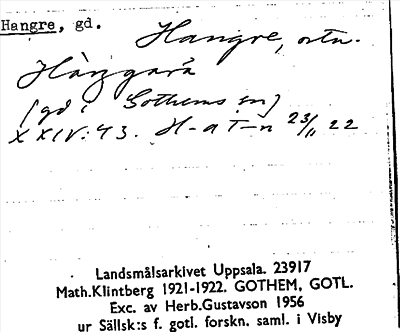 Hangre, gd.
Hangre, ortn.
Hàŋgarå
(gd i Gothems sn)
XXIV:43. H-a T-n 23/11 22
Landsmålsarkivet Uppsala. 23917
Math.Klintberg 1921-1922. GOTHEM, GOTL.
Exc. av Herb.Gustavson 1956
ur Sällsk:s f. gotl. forskn. saml. i Visby